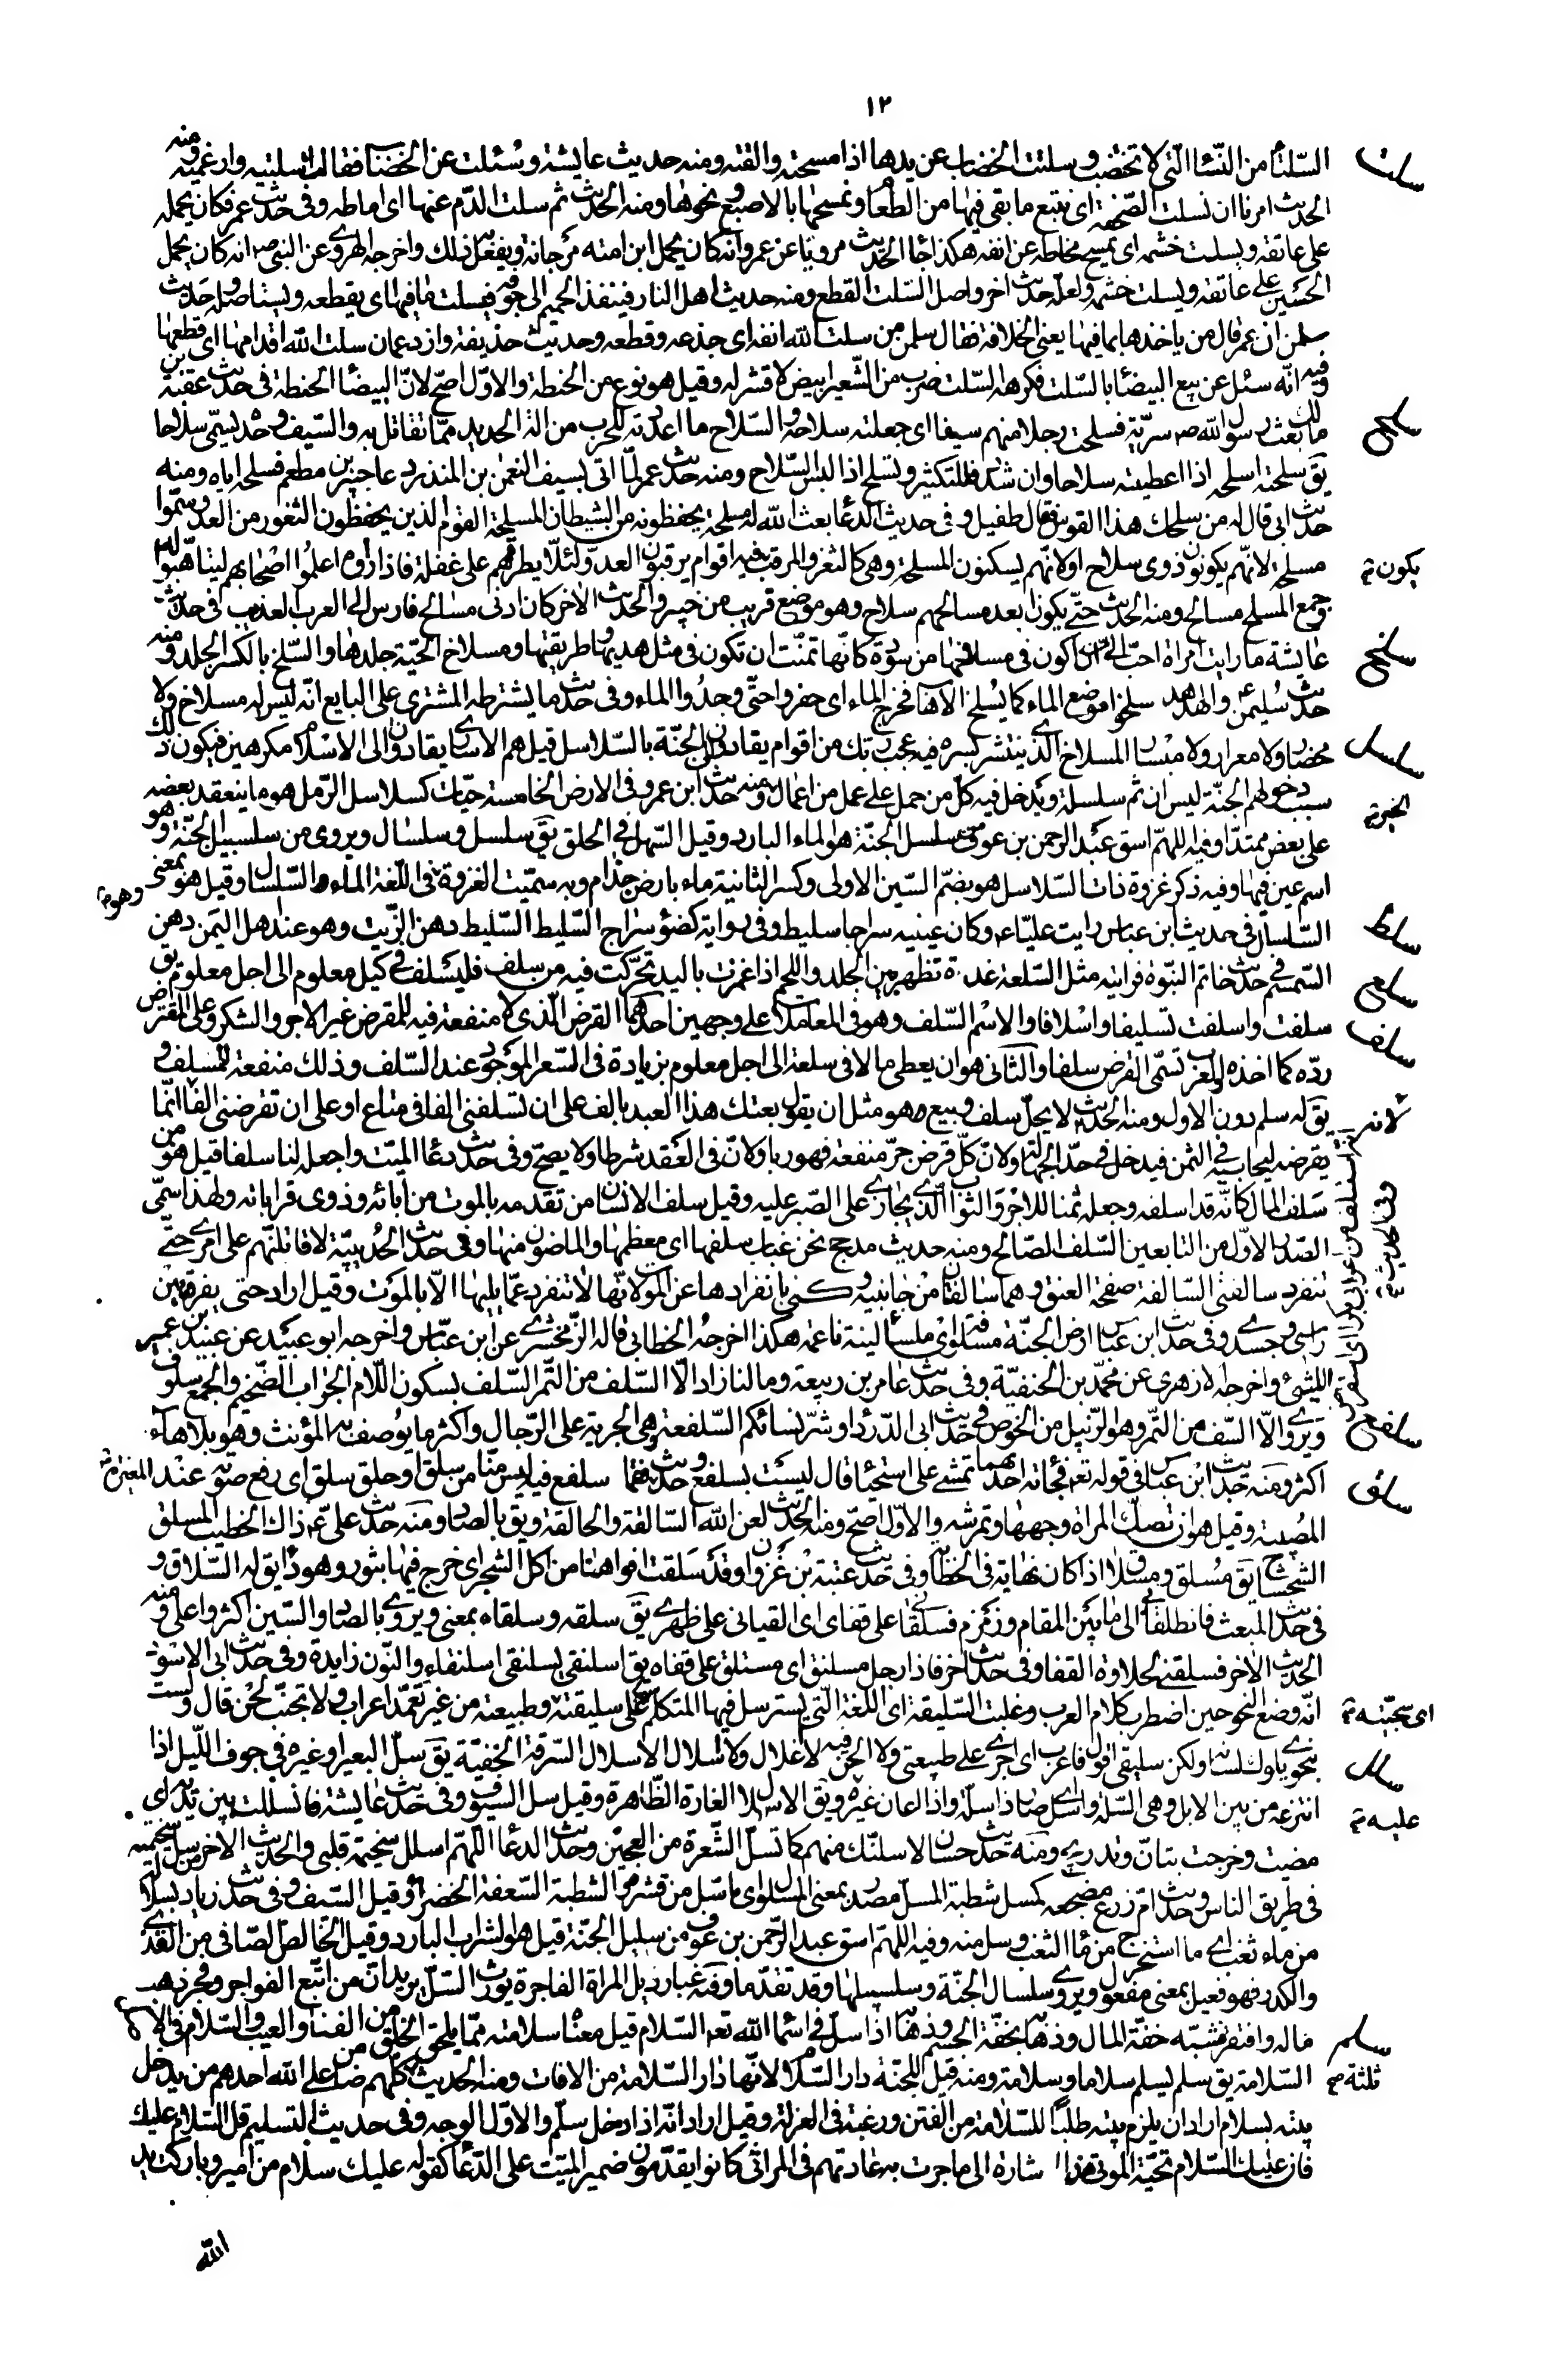 ١٢
سلت
السّلتاء من النّساء الّتي لا تختضب وسلتت الخضاب عن يدها اذا مسحته والقته ومنه حديث عايشة وسُئلت عن الخضاب فقالت اسلتيه وارغميه ومنه
الحديث امرنا ان نسلت الصّحفة اى نتتبع ما بقى فيها من الطعام ونمسحها بالاصبع ونحوها ومنه الحديث ثم سلت الدّم عنها اى اماطه وفى حديث عمر فكان يحمله
على عاتقه ويسلت خشمه اى يمسح مخاطه عن انفه هكذا جاء الحديث مرويّا عن عمر وانه كان يحمل ابن امته مرجانة ويفعل به ذلك واخرجه الهروى عن النبى ص انه كان يحمل
الحسين على عاتقه ويسلت خشمه ولعلّه حديث اخر واصل السّلت القطع ومنه حديث اهل النار فينفذ الحميم الى جوفه فيسلت ما فيها اى يقطعه ويستاصله وحديث
سلمن ان عمر قال من ياخذها بما فيها يعنى الخلافة فقال سلمن من سلت الله انفه اى جذعه وقطعه وحديث حذيفة وازد عمان سلت الله اقدامها اى قطعها
وفيه انّه سئل عن بيع البيضاء بالسّلت فكرهه السّلت ضرب من الشّعير ابيض لا قشر له وقيل هو نوع من الحنطة والاوّل اصحّ لانّ البيضاء الحنطة فى حديث عقبة بن
سلح
مالك بعث رسول الله ص سريّة فسلحت رجلا منهم سيفا اى جعلته سلاحه والسّلاح ما اعددته للحرب من الة الحديد ممّا تقاتل به والسّيف وحده يسمّى سلاحا
يق سلحته اسلحه اذا اعطيته سلاحا وان شدّد فللتكثير وتسلح اذا لبس السّلاح ومنه حديث عمر لمّا اتى بسيف النعمن بن المنذر دعا جبير بن مطعم فسلحه اياه ومنه
حديث ابى قال له من سلحك هذا القوس فقال طفيل وفى حديث الدعاء بعث الله له مسلحة يحفظونه من الشيطان المسلحة القوم الذين يحفظون الثغور من العدو سمّوا
مسلحة لانّهم يكونون ذوى سلاح او لانّهم يسكنون المسلحة وهى كالثغر والمرقب فيه اقوام يرقبون العدوّ لئلّا يطرقهم على غفلة فاذا راوه اعلموا اصحابهم ليتاهّبوا له
يكون
وجمع المسلح مسالح ومنه الحديث حتّى يكون ابعد مسالحهم سلاح وهو موضع قريب من خيبر والحديث الاخر كان ادنى مسالح فارس الى العرب العذيب فى حديث
سلخ
عايشة ما رايت امراة احبّ الىّ ان اكون فى مسلاخها من سودة كانّها تمنّت ان تكون فى مثل هديها وطريقتها ومسلاخ الحيّة جلدها والسّلخ بالكسر الجلد ومنه
حديث سليمن ع والهدهد سلخوا موضع الماء كما يُسلخ الاهاب فخرج الماء اى حفروا حتّى وجدُوا الماء وفى حديث ما يشترطه المشترى على البايع انّه ليس له مسلاخ ولا
سلسل
مخضار ولا معرار ولا مبسار المسلاخ الّذى ينتثر بسره فيه عجب ربك من اقوام يقادون الى الجنّة بالسّلاسل قيل هم الاسرى يقادون الى الاسلام مكرهين فيكون ذلك
سبب دخولهم الجنّة ليس ان ثم سلسلة ويدخل فيه كلّ من حمل على عمل من اعمال ومنه حديث ابن عمرو فى الارض الخامسة حيّات كسلاسل الرّمل هو ما ينعقد بعضه
الخير
على بعض ممتدّا وفيه اللهمّ اسق عبد الرحمن بن عوف من سلسل الجنّة هو الماء البارد وقيل السّهل فى الحلق يق سلسل وسلسال ويروى من سلسبيل الجنّة وهو
اسم عين فيها وفيه ذكر غزوة ذات السّلاسل هو بضمّ السّين الاولى وكسر الثانية ماء بارض جذام وبه سمّيت الغزوة وهو فى اللّغة الماء السّلسال وقيل هو بمعنى
سلط
السّلسال فى حديث ابن عباس رايت عليّا ع وكان عينيه سراجا سليط وفى رواية كضوء سراج السّليط السّليط دهن الزّيت وهو عند اهل اليمن دهن
سلع
السّمسم فى حديث خاتم النبّوة فرايته مثل السّلعة غدة تظهر بين الجلد واللحم اذا غمزت باليد تحرّكت فيه من سلف فليسلف فى كيل معلوم الى اجل معلوم يق
سلف
سلفت واسلفت تسليفا واسلافا والاسم السّلف وهو فى المعاملات على وجهين احدهما القرض الّذى لا منفعة فيه للمقرض غير الاجر والشكر وعلى المقترض
ردّه كما اخذه والعرب تسمّى القرض سلفا والثانى هو ان يعطى مالا فى سلعة الى اجل معلوم بزيادة فى السّعر الموجود عند السّلف وذلك منفعة للمسلف و
لانه
يق له سلم دون الاول ومنه الحديث لا يحلّ سلف وبيع وهو مثل ان يقول بعتك هذا العبد بالف على ان تسلفنى الفا فى متاع او على ان تقرضنى الفا انّما
يقرضه ليحابيه فى الثمن فيدخل فى حدّ الجهالة ولانّ كلّ قرض جرّ منفعة فهو ربا ولانّ فى العقد شرطا ولا يصحّ وفى حديث دعاء الميّت واجعله لنا سلفا قيل هو من
وفى الحديث
سَلف المال كانّه قد اسلفه وجعله ثمنا للاجر والثواب الّذى يجازى على الصّبر عليه وقيل سلف الانسان من تقدمه بالموت من آبائه وذوى قراباته ولهذا سمّى
الصّدر الاوّل من التابعين السّلف الصّالح ومنه حديث مذحج نحن عباب سلفها اى معظمها والماضون منها وفى حديث الحُديبيّة لاقاتلنّهم على امرى حتّى
تنفرد سالفتى السّالفة صفحة العنق وهما سالفتان من جانبيه وكنى بانفرادها عن الموت لانّها لا تنفرد عمّا يليها الّا بالموت وقيل اراد حتى يفرق بين
راسى وجسدى وفى حديث ابن عباس ارض الجنّة مسلوفة اى ملساء لينة ناعمة هكذا اخرجه الخطابى قاله الزمخشرى عن ابن عبّاس واخرجه ابو عبيد عن عبيد بن عمير
الليثى واخرجه الازهرى عن محمّد بن الحنفيّة وفى حديث عامر بن ربيعة وما لنا زاد الّا السّلف من التّمر السّلف بسكون اللّام الجراب الضّخم والجمع سلوف
سلفع
ويروى الّا السّف من التّمر وهو الزّبيل من الخوص فى حديث ابى الدّرداء وشرّ نسائكم السّلفعة هى الجرية على الرّجال واكثر ما يُوصف به المؤنث وهو بلا هاء
سلق
اكثر ومنه حديث ابن عباس فى قوله تع فجاءته احدهما تمشى على استحياء قال ليست بسلفع وحديث فقما سلفع فيه ليس منّا من سلق او حلق سلق اى رفع صوته عند
المُصيبة وقيل هو ان تصكّ المراة وجهها وتمرشه والاوّل اصحّ ومنه الحديث لعن الله السّالقة والحالقة ويق بالصاد ومنه حديث علىّ ع ذاك الخطيب المسلق
الشّحشاح يق مُسلق ومسلاق اذا كان نهاية فى الخطاب وفى حديث عتبة بن غزوان وقد سَلقت افواهنا من اكل الشجر اى خرج فيها بثور وهو داء يق له السّلاق و
فى حديث المبعث فانطلقا بى الى ما بين المقام وزمزم فسلقانى على قفاى اى القيانى على ظهرى يق سلقه وسلقاه بمعنى ويروى بالصاد والسّين اكثر واعلى ومنه
الحديث الاخر فسلقنى لحلاوة القفا وفى حديث اخر فاذا رجل مسلنق اى مستلق على قفاه يق اسلنقى يسلنقى اسلنقاء والنّون زايدة وفى حديث ابى الاسود
اى سجيّته
انّه وضع النحو حين اضطرب كلام العرب وغلبت السّليقة اى اللّغة الّتى يسترسل فيها المتكلم على سليقته وطبيعته من غير تعمّد اعراب ولا تجنّب لحن قال ولست
سلل
بنحوى يلوك لسانه ولكن سليقى اقول فاعرب اى اجرى على طبيعتى ولا الحن فيه لا اغلال ولا اسلال الاسلال السّرقة الخفيّة يق سلّ البعير وغيره فى جوف اللّيل اذا
عليه
انتزعه من بين الابل وهى السّلّة واسلّ صار ذا سلّة واذا اعان غيره ويق الاسلال الغارة الظّاهرة وقيل سل السيوف وفى حديث عايشة فانسللت بين يديه اى
مضيت وخرجت بتانّ وتدريج ومنه حديث حسان لاسلنّك منهم كما تسلّ الشّعرة من العجين وحديث الدعاء اللهمّ اسلل سخيمة قلبى والحديث الاخر من سلّ سخيمته
فى طريق الناس وحديث امّ زرع مضجعه كمسل شطبة المسلّ مصدر بمعنى المسلول اى ما سلّ من قشره والشطبة السّعفة الخضراء وقيل السّيف وفى حديث زياد بسلالة
من ماء ثغب اى ما استخرج من ماء الثغب وسل منه وفيه اللهمّ اسق عبد الرّحمن بن عوف من سليل الجنّة قيل هو الشّراب البارد وقيل الخالص الصّافى من القذى
والكدر فهو فعيل بمعنى مفعول ويروى سلسال الجنّة وسلسبيلها وقد تقدّما وفيه غبار ذيل المراة الفاجرة يورث السّلّ يريد انّ من اتّبع الفواجر وفجر ذهب
سلم
ماله وافتقر فشبّه خفّة المال وذهابه بخفّة الجسم وذهابه اذا سلّ فى اسماء الله تع السّلام قيل معناه سلامته ممّا يلحق الخلق من الفناء والعيب والسّلام فى الاصل
ثلثة
السّلامة يق سلم يسلم سلاما وسلامة ومنه قيل للجنّة دار السّلام لانّها دار السّلامة من الافات ومنه الحديث كلّهم ضامن على الله احدهم من يدخل
بيته بسلام اراد ان يلزم بيته طلبًا للسّلامة من الفتن ورغبة فى العزلة وقيل اراد انّه اذا دخل سلّم والاوّل الوجه وفى حديث التسليم قل السّلام عليك
فان عليك السّلام تحيّة الموتى هذا اشارة الى ما جرت به عادتهم فى المراثى كانوا يقدّمون ضمير الميّت على الدّعاء كقوله عليك سلام من امير وباركت يد
الله